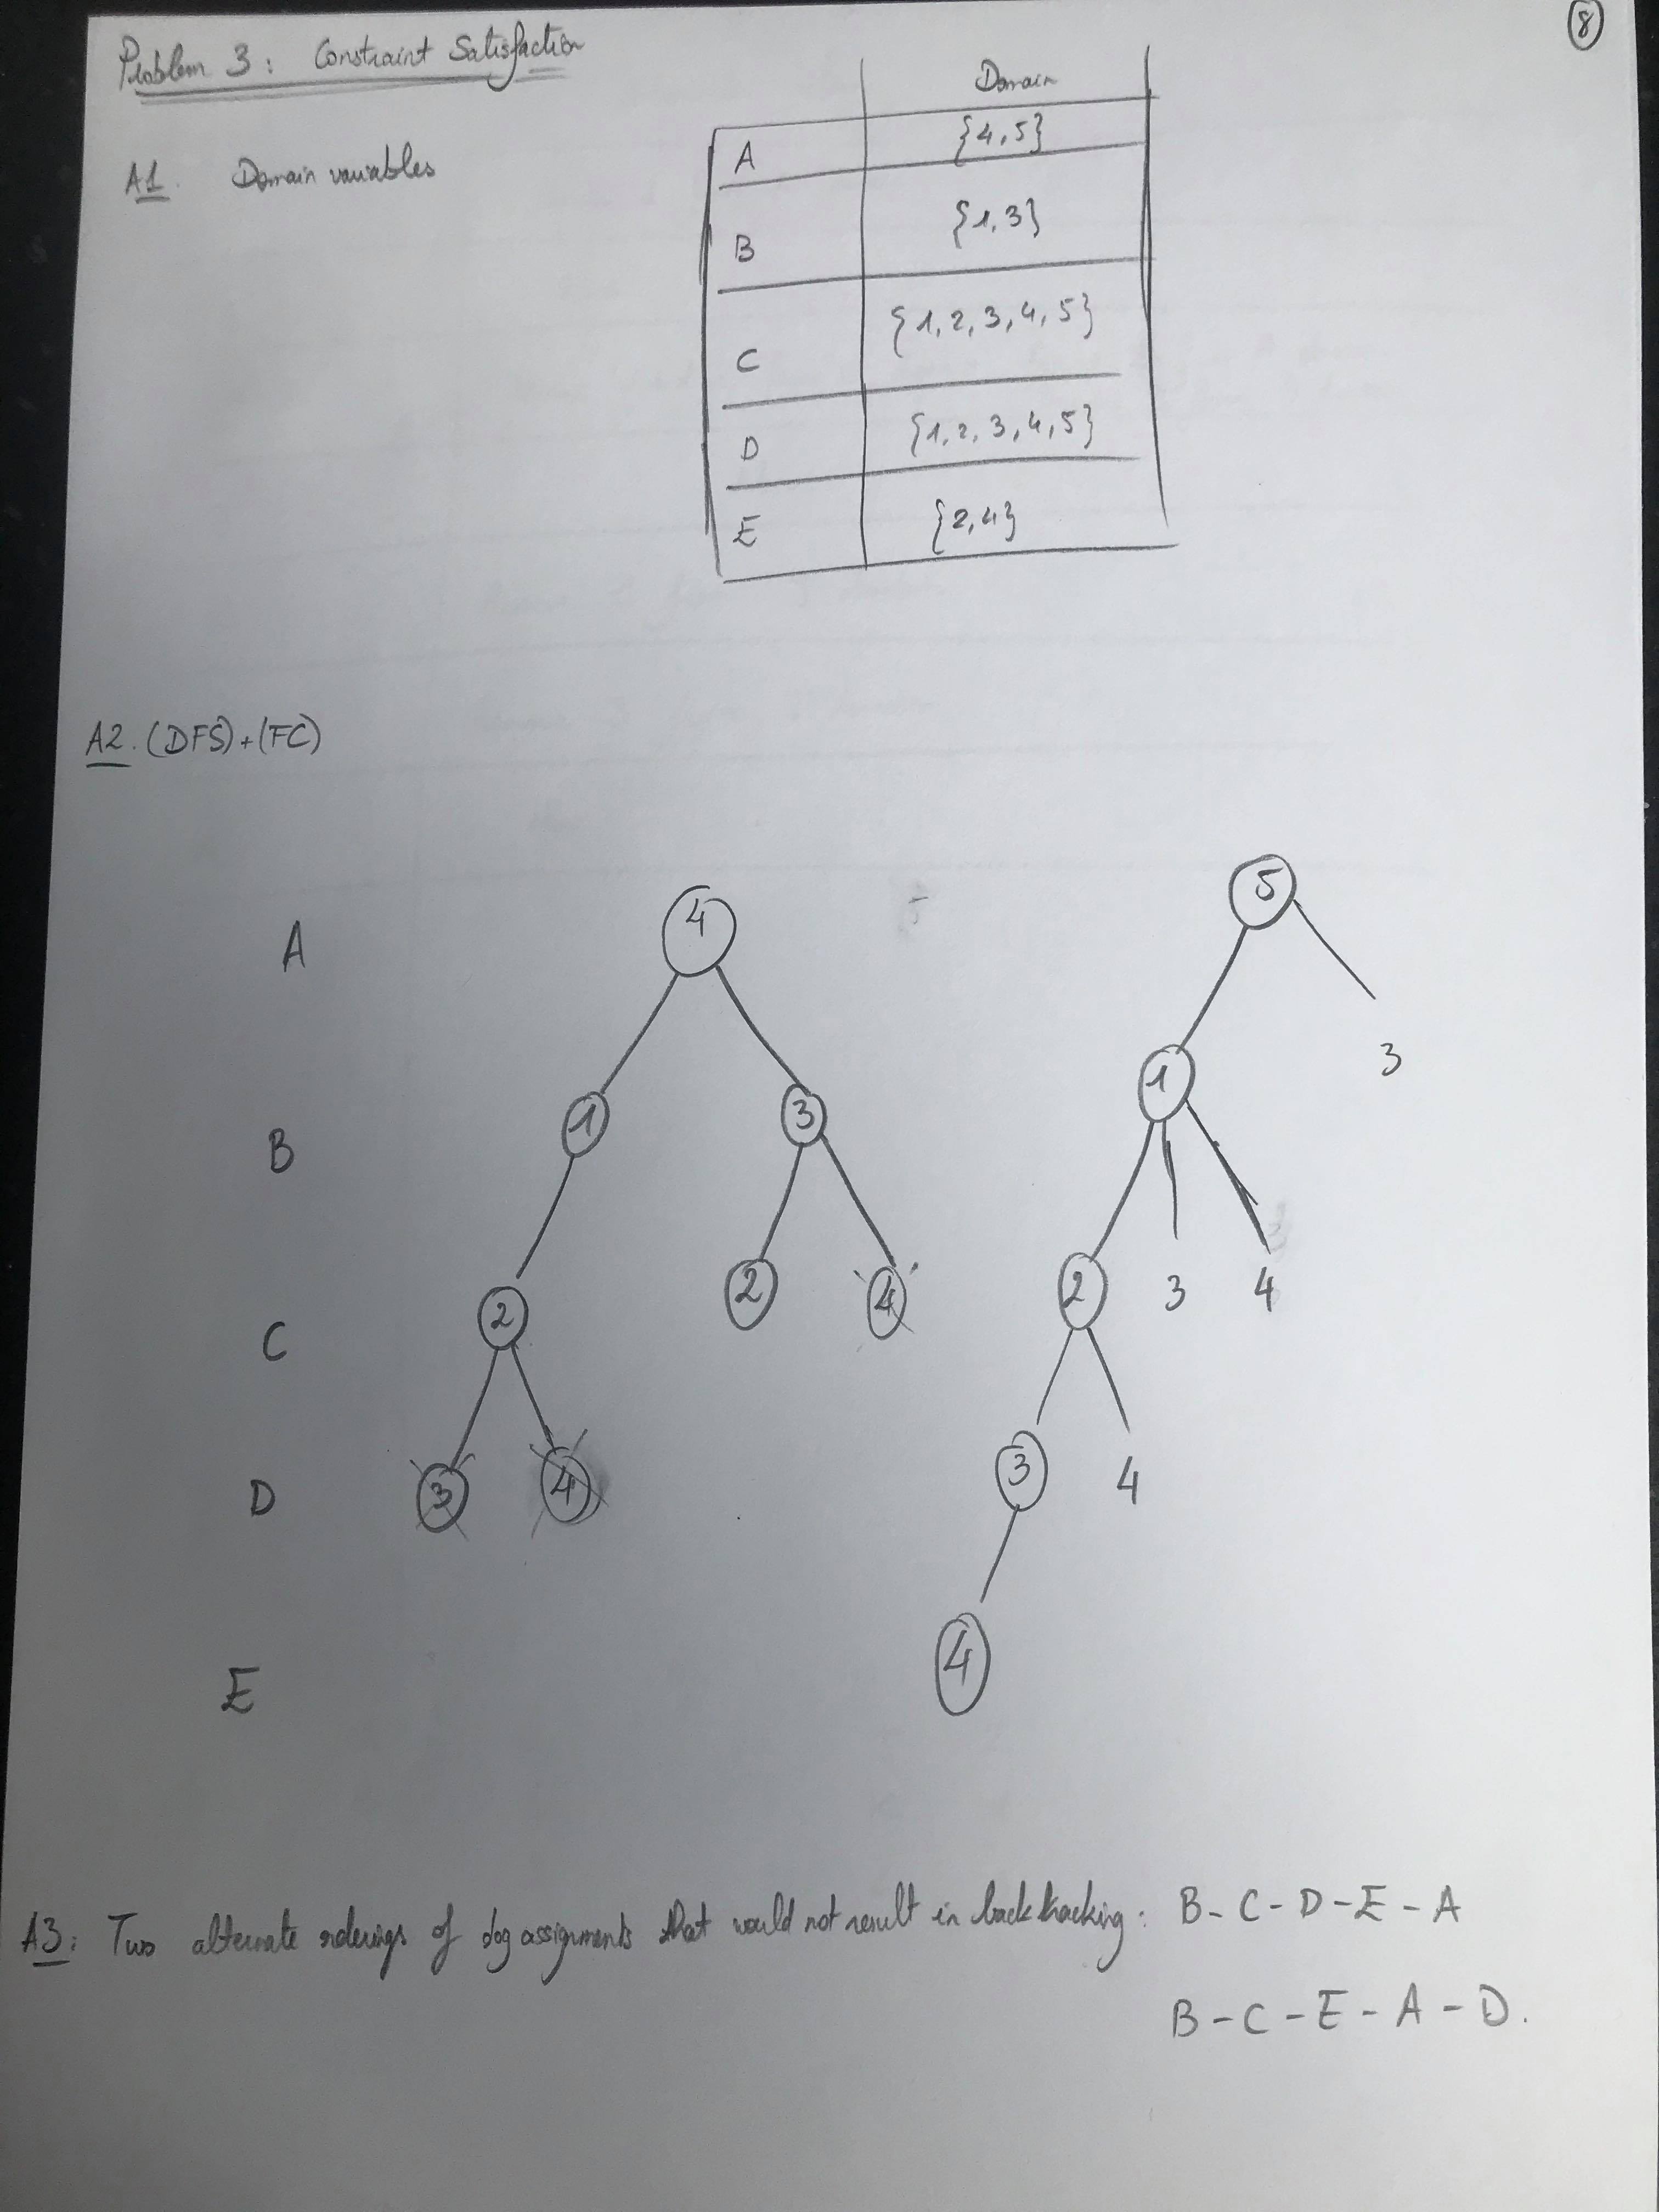 8
Problem 3: Constraint Satisfaction
Domain
A1. Domain variables
A {4,5}
B {1,3}
C {1,2,3,4,5}
D {1,2,3,4,5}
E {2,4}
A2. (DFS)+(FC)
A 4 5
B 1 3 1 3
C 2 2 4 2 3 4
D 3 4 3 4
E 4
A3: Two alternate orderings of dog assignments that would not result in backtracking: B-C-D-E-A
B-C-E-A-D.